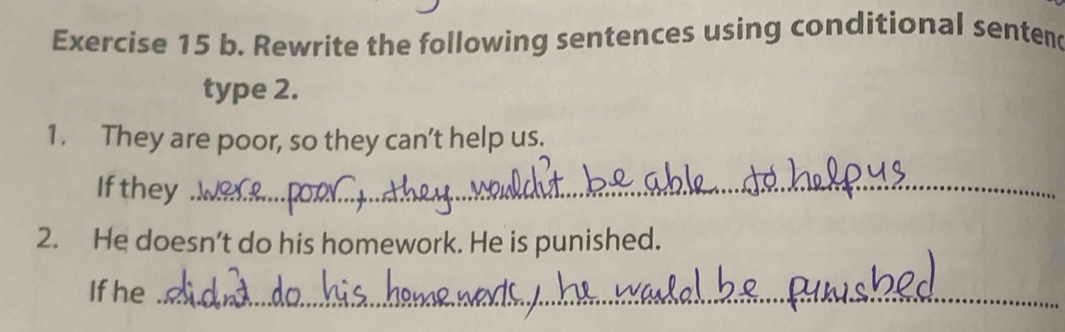 Exercise 15 b. Rewrite the following sentences using conditional sentenc
type 2.
1. They are poor, so they can't help us.
If they were poor, they wouldn't be able to help us
2. He doesn't do his homework. He is punished.
If he didn't do his homework, he would be punished